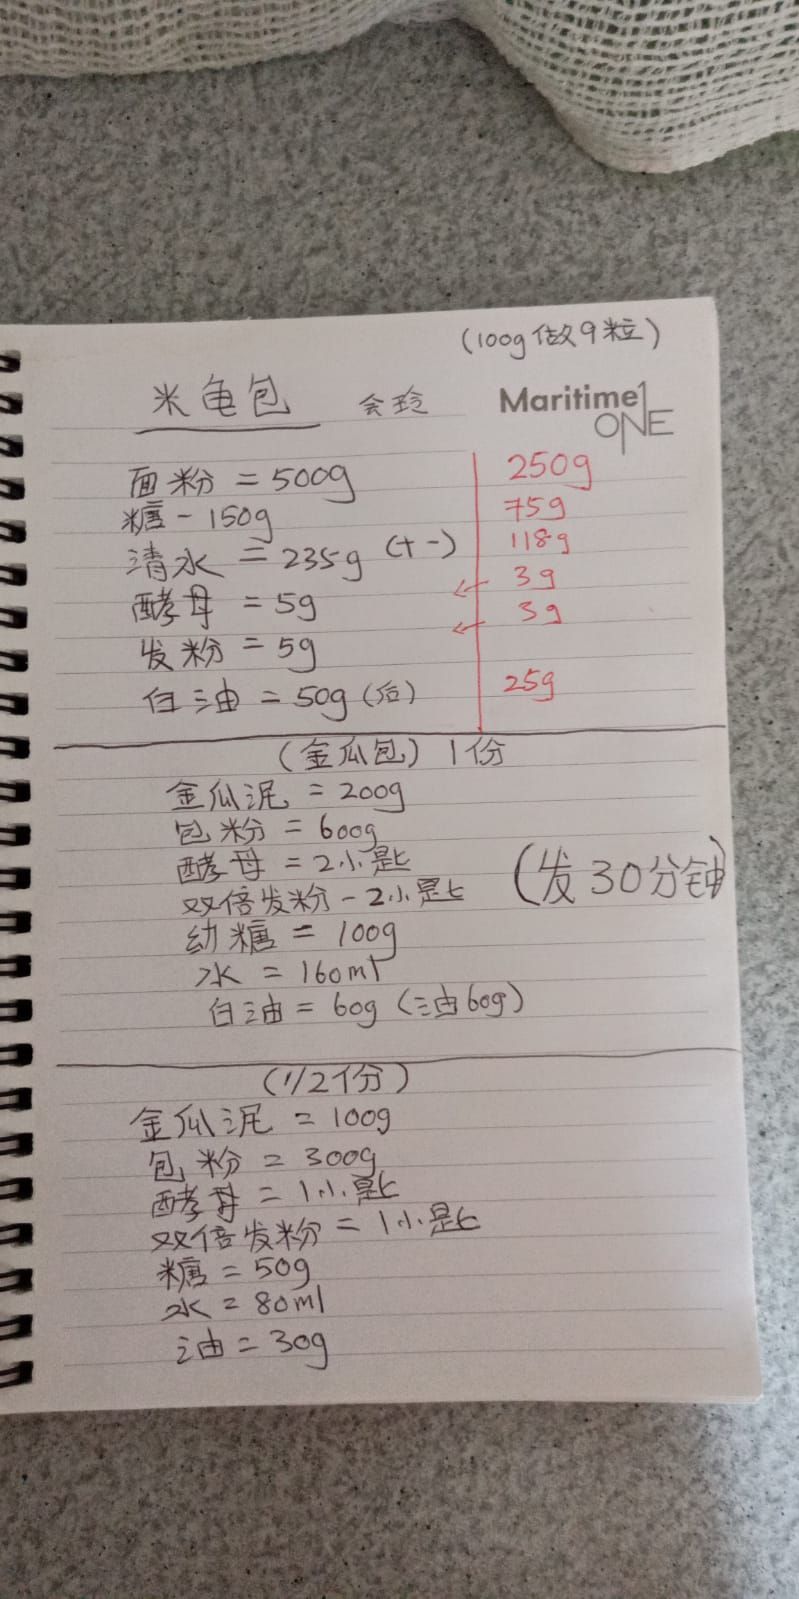 (100g 做9粒)
米龟包 会玲
Maritime ONE
面粉 = 500g 250g
糖 - 150g 75g
清水 = 235g (+-) 118g
酵母 = 5g ← 3g
发粉 = 5g ← 3g
白油 = 50g (后) 25g
(金瓜包) 1份
金瓜泥 = 200g
包粉 = 600g
酵母 = 2小匙
双倍发粉 - 2小匙
(发30分钟)
幼糖 = 100g
水 = 160ml
白油 = 60g (油60g)
(1/2份)
金瓜泥 = 100g
包粉 = 300g
酵母 = 1小匙
双倍发粉 = 1小匙
糖 = 50g
水 = 80ml
油 = 30g